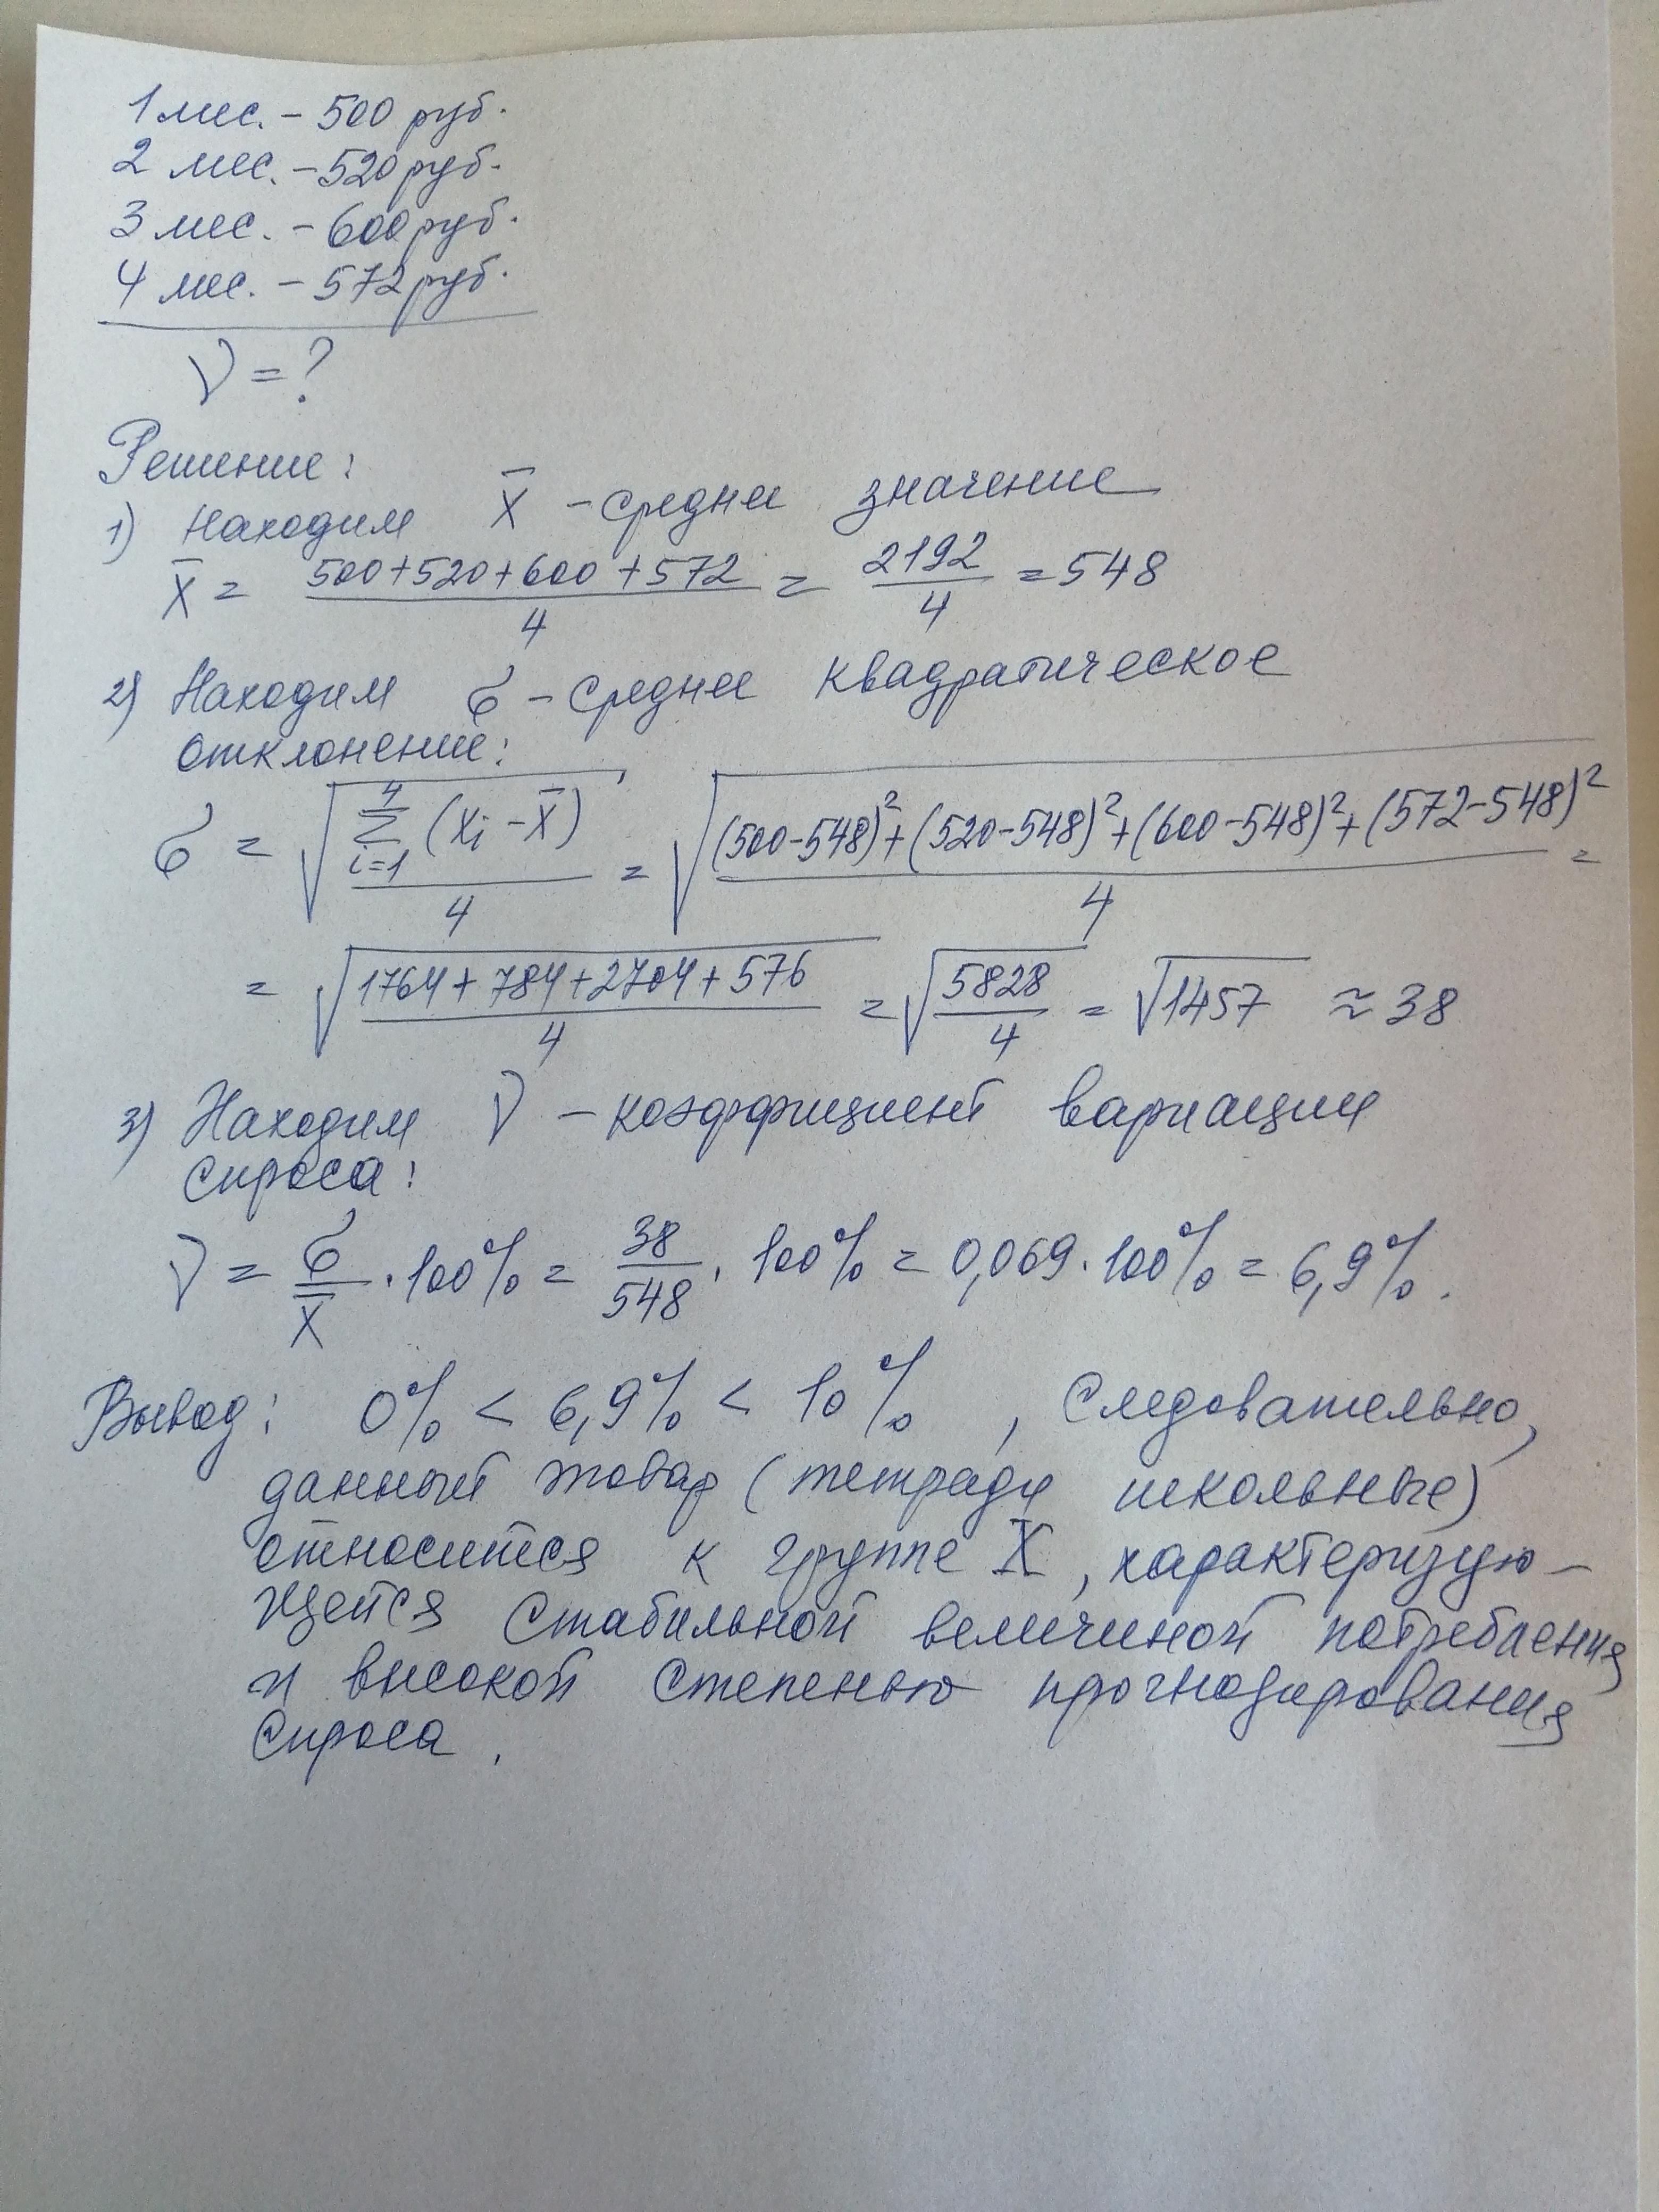 1 мес. - 500 руб.
2 мес. - 520 руб.
3 мес. - 600 руб.
4 мес. - 572 руб.
V = ?
Решение:
1) Находим x̄ - среднее значение
x̄ = (500+520+600+572)/4 = 2192/4 = 548
2) Находим σ - среднее квадратическое
отклонение:
σ = √(∑ⁿᵢ₌₁ (xᵢ - x̄)/4) = √(((500-548)²+(520-548)²+(600-548)²+(572-548)²)/4) =
= √((1764+784+2704+576)/4) = √(5828/4) = √1457 ≈ 38
3) Находим V - коэффициент вариации
спроса:
V = σ/x̄ · 100% = 38/548 · 100% = 0,069 · 100% = 6,9%.
Вывод: 0% < 6,9% < 10%, Следовательно,
данный товар (тетради школьные)
относится к группе X, характеризую-
щейся стабильной величиной потребления
и высокой степенью прогнозирования
спроса.